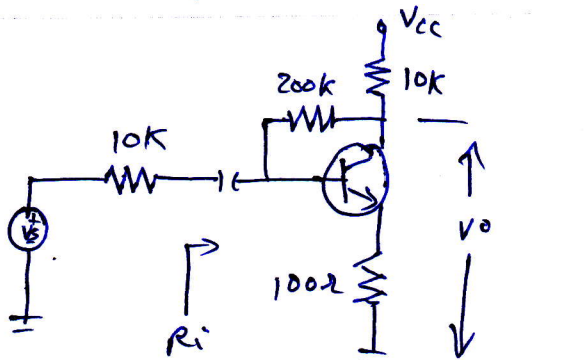 Vcc
200k
10K
10K
Vs
Vo
100Ω
Ri